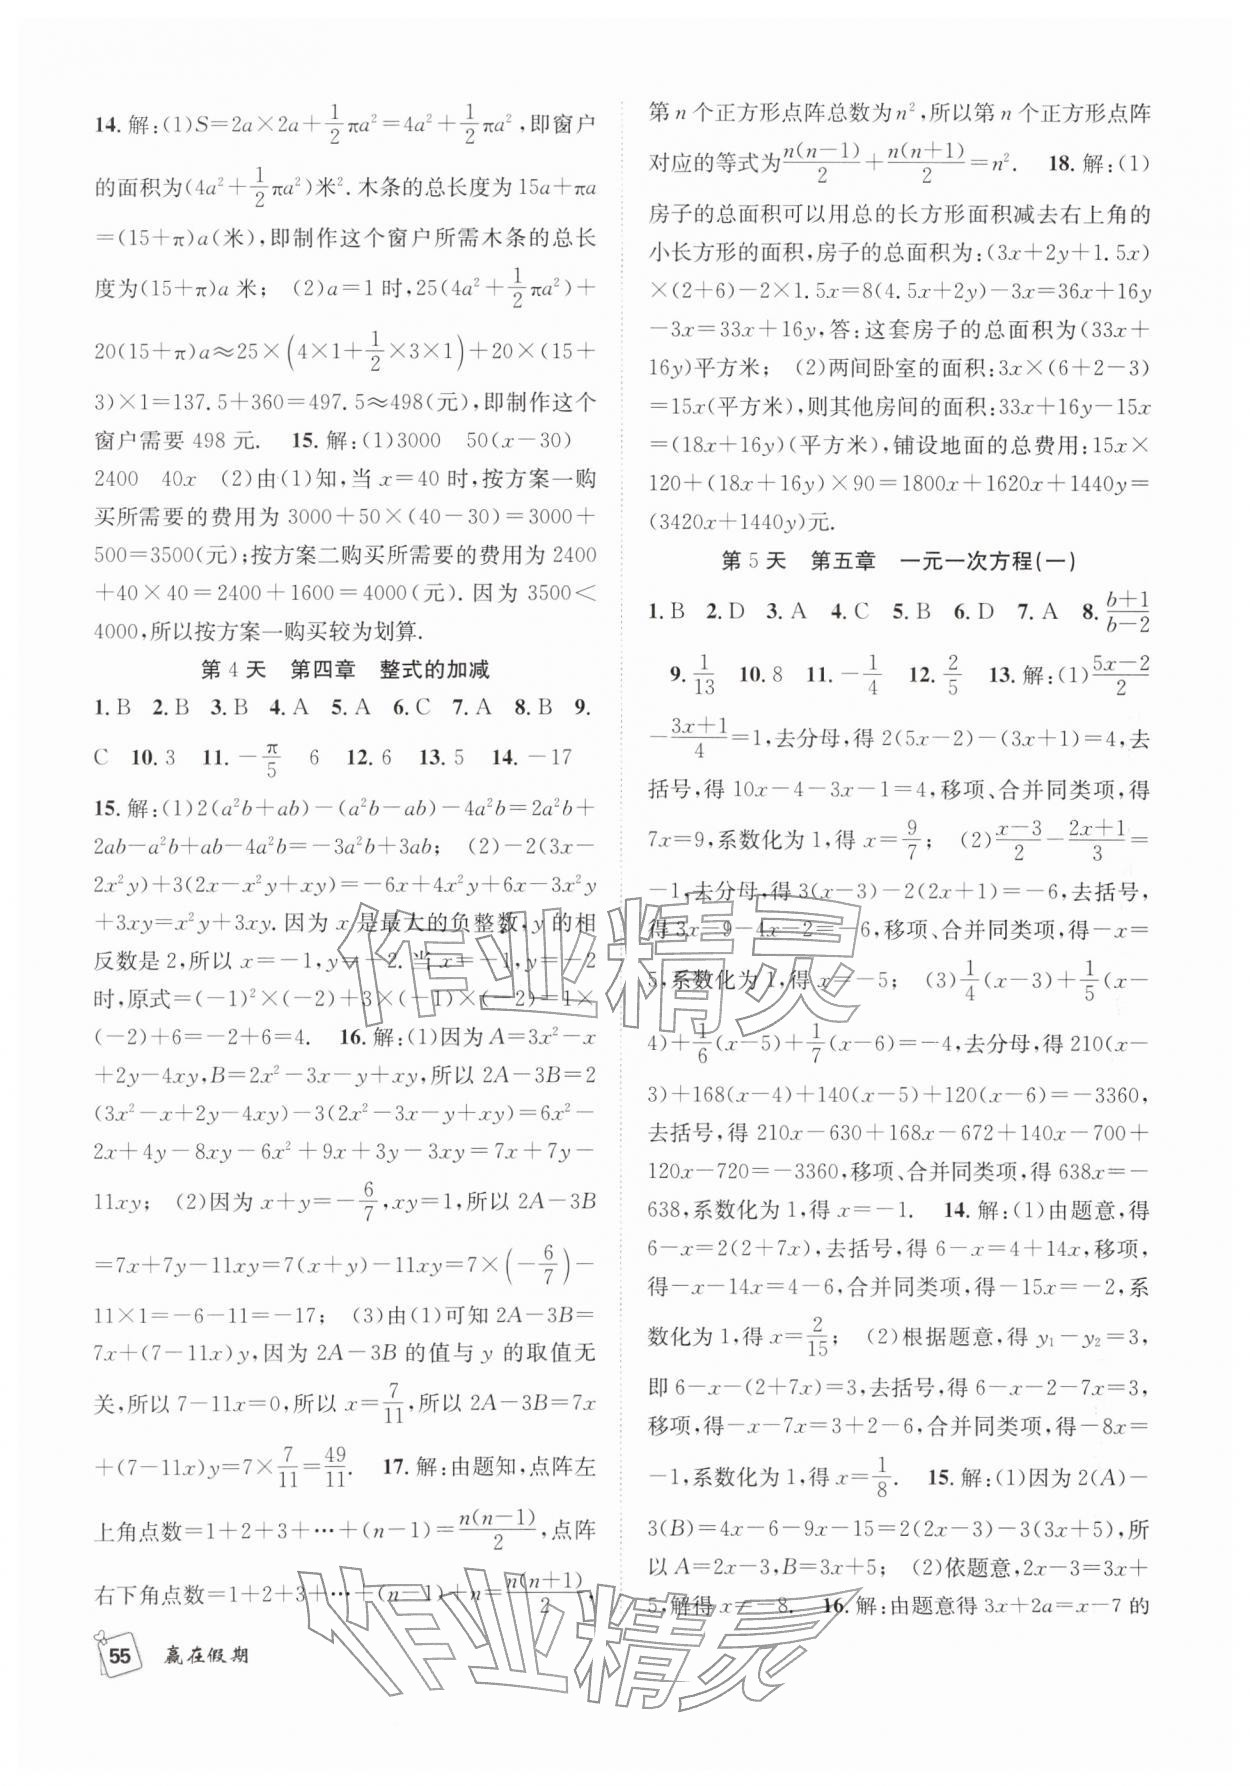 14. 解:(1)S=2a×2a+1/2πa²=4a²+1/2πa²,即窗户
的面积为(4a²+1/2πa²)米². 木条的总长度为15a+πa
=(15+π)a(米),即制作这个窗户所需木条的总长
度为(15+π)a米; (2)a=1时,25(4a²+1/2πa²)+
20(15+π)a≈25×(4×1+1/2×3×1)+20×(15+
3)×1=137.5+360=497.5≈498(元),即制作这个
窗户需要 498 元. 15. 解:(1)3000 50(x-30)
2400 40x (2)由(1)知,当 x=40 时,按方案一购
买所需要的费用为 3000+50×(40-30)=3000+
500=3500(元);按方案二购买所需要的费用为 2400
+40×40=2400+1600=4000(元). 因为 3500<
4000,所以按方案一购买较为划算.
第 4 天 第四章 整式的加减
1. B 2. B 3. B 4. A 5. A 6. C 7. A 8. B 9.
C 10. 3 11. -π/5 6 12. 6 13. 5 14. -17
15. 解:(1)2(a²b+ab)-(a²b-ab)-4a²b=2a²b+
2ab-a²b+ab-4a²b=-3a²b+3ab; (2)-2(3x-
2x²y)+3(2x-x²y+xy)=-6x+4x²y+6x-3x²y
+3xy=x²y+3xy. 因为 x 是最大的负整数,y 的相
反数是 2,所以 x=-1,y=-2. 当 x=-1,y=-2
时,原式=(-1)²×(-2)+3×(-1)×(-2)=1×
(-2)+6=-2+6=4. 16. 解:(1)因为 A=3x²-x
+2y-4xy,B=2x²-3x-y+xy,所以 2A-3B=2
(3x²-x+2y-4xy)-3(2x²-3x-y+xy)=6x²-
2x+4y-8xy-6x²+9x+3y-3xy=7x+7y-
11xy; (2)因为 x+y=-6/7,xy=1,所以 2A-3B
=7x+7y-11xy=7(x+y)-11xy=7×(-6/7)-
11×1=-6-11=-17; (3)由(1)可知 2A-3B=
7x+(7-11x)y,因为 2A-3B 的值与 y 的取值无
关,所以 7-11x=0,所以 x=7/11,所以 2A-3B=7x
+(7-11x)y=7×7/11=49/11. 17. 解:由题知,点阵左
上角点数=1+2+3+…+(n-1)=n(n-1)/2,点阵
右下角点数=1+2+3+…+(n-1)+n=n(n+1)/2,
55 赢在假期
第 n 个正方形点阵总数为 n²,所以第 n 个正方形点阵
对应的等式为n(n-1)/2+n(n+1)/2=n². 18. 解:(1)
房子的总面积可以用总的长方形面积减去右上角的
小长方形的面积,房子的总面积为:(3x+2y+1.5x)
×(2+6)-2×1.5x=8(4.5x+2y)-3x=36x+16y
-3x=33x+16y,答:这套房子的总面积为(33x+
16y)平方米; (2)两间卧室的面积:3x×(6+2-3)
=15x(平方米),则其他房间的面积:33x+16y-15x
=(18x+16y)(平方米),铺设地面的总费用:15x×
120+(18x+16y)×90=1800x+1620x+1440y=
(3420x+1440y)元.
第 5 天 第五章 一元一次方程(一)
1. B 2. D 3. A 4. C 5. B 6. D 7. A 8. b+1/b-2
9. 1/13 10. 8 11. -1/4 12. 2/5 13. 解:(1)5x-2/2
-3x+1/4=1,去分母,得 2(5x-2)-(3x+1)=4,去
括号,得 10x-4-3x-1=4,移项、合并同类项,得
7x=9,系数化为 1,得 x=9/7; (2)x-3/2-2x+1/3=
-1,去分母,得 3(x-3)-2(2x+1)=-6,去括号,
得 3x-9-4x-2=-6,移项、合并同类项,得-x=
5,系数化为 1,得 x=-5; (3)1/4(x-3)+1/5(x-
4)+1/6(x-5)+1/7(x-6)=-4,去分母,得 210(x-
3)+168(x-4)+140(x-5)+120(x-6)=-3360,
去括号,得 210x-630+168x-672+140x-700+
120x-720=-3360,移项、合并同类项,得 638x=-
638,系数化为 1,得 x=-1. 14. 解:(1)由题意,得
6-x=2(2+7x),去括号,得 6-x=4+14x,移项,
得-x-14x=4-6,合并同类项,得-15x=-2,系
数化为 1,得 x=2/15; (2)根据题意,得 y₁-y₂=3,
即 6-x-(2+7x)=3,去括号,得 6-x-2-7x=3,
移项,得-x-7x=3+2-6,合并同类项,得-8x=
-1,系数化为 1,得 x=1/8. 15. 解:(1)因为 2(A)-
3(B)=4x-6-9x-15=2(2x-3)-3(3x+5),所
以 A=2x-3,B=3x+5; (2)依题意,2x-3=3x+
5,解得 x=-8. 16. 解:由题意得 3x+2a=x-7 的
作业精灵
作业精灵